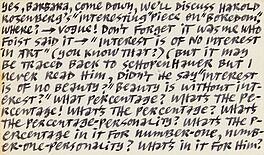 YES, BARBARA, COME DOWN, WE'LL DISCUSS HAROLD
ROSENBERG'S "INTERESTING" PIECE ON "BOREDOM".
WHERE? → VOGUE! DON'T FORGET IT WAS ME WHO
FOIST SAID IT → "INTEREST IS OF NO INTEREST
IN ART" (YOU KNOW THAT?). BUT IT MAY
BE TRACED BACK TO SCHOPENHAUER BUT I
NEVER READ HIM, DIDN'T HE SAY "INTEREST
IS OF NO BEAUTY" BEAUTY IS WITHOUT INT-
EREST?" WHAT PERCENTAGE? WHATS THE PE-
RCENTAGE! WHATS THE PERCENTAGE? WHATS THE
PERCENTAGE-PERSONALITY? WHATS THE P-
ERCENTAGE IN IT FOR NUMBER-ONE, NUMB-
ER-ONE-PERSONALITY? WHATS IN IT FOR HIM?